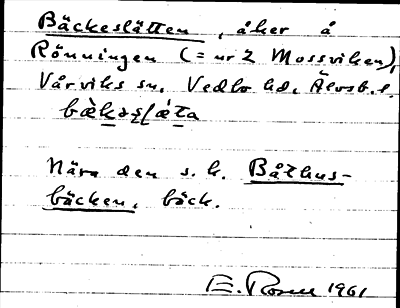 Bäckeslätten, åker å
Rönningen (= nr 2 Mossviken),
Vårviks sn. Vedbo hd. Älvsb. l.
Nära den s. k. Båthus-
bäcken, bäck.
E. Rosen 1961